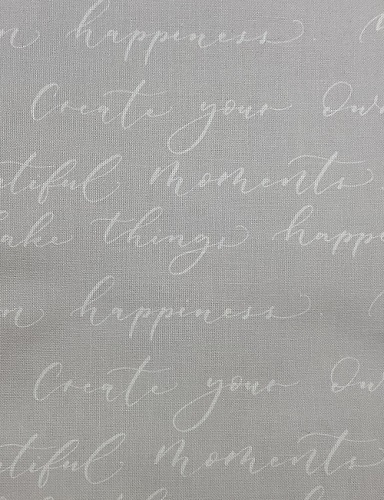 n happiness.
Create your Own
tiful moments
ake things happe
n happiness.
Create your Own
tiful moments